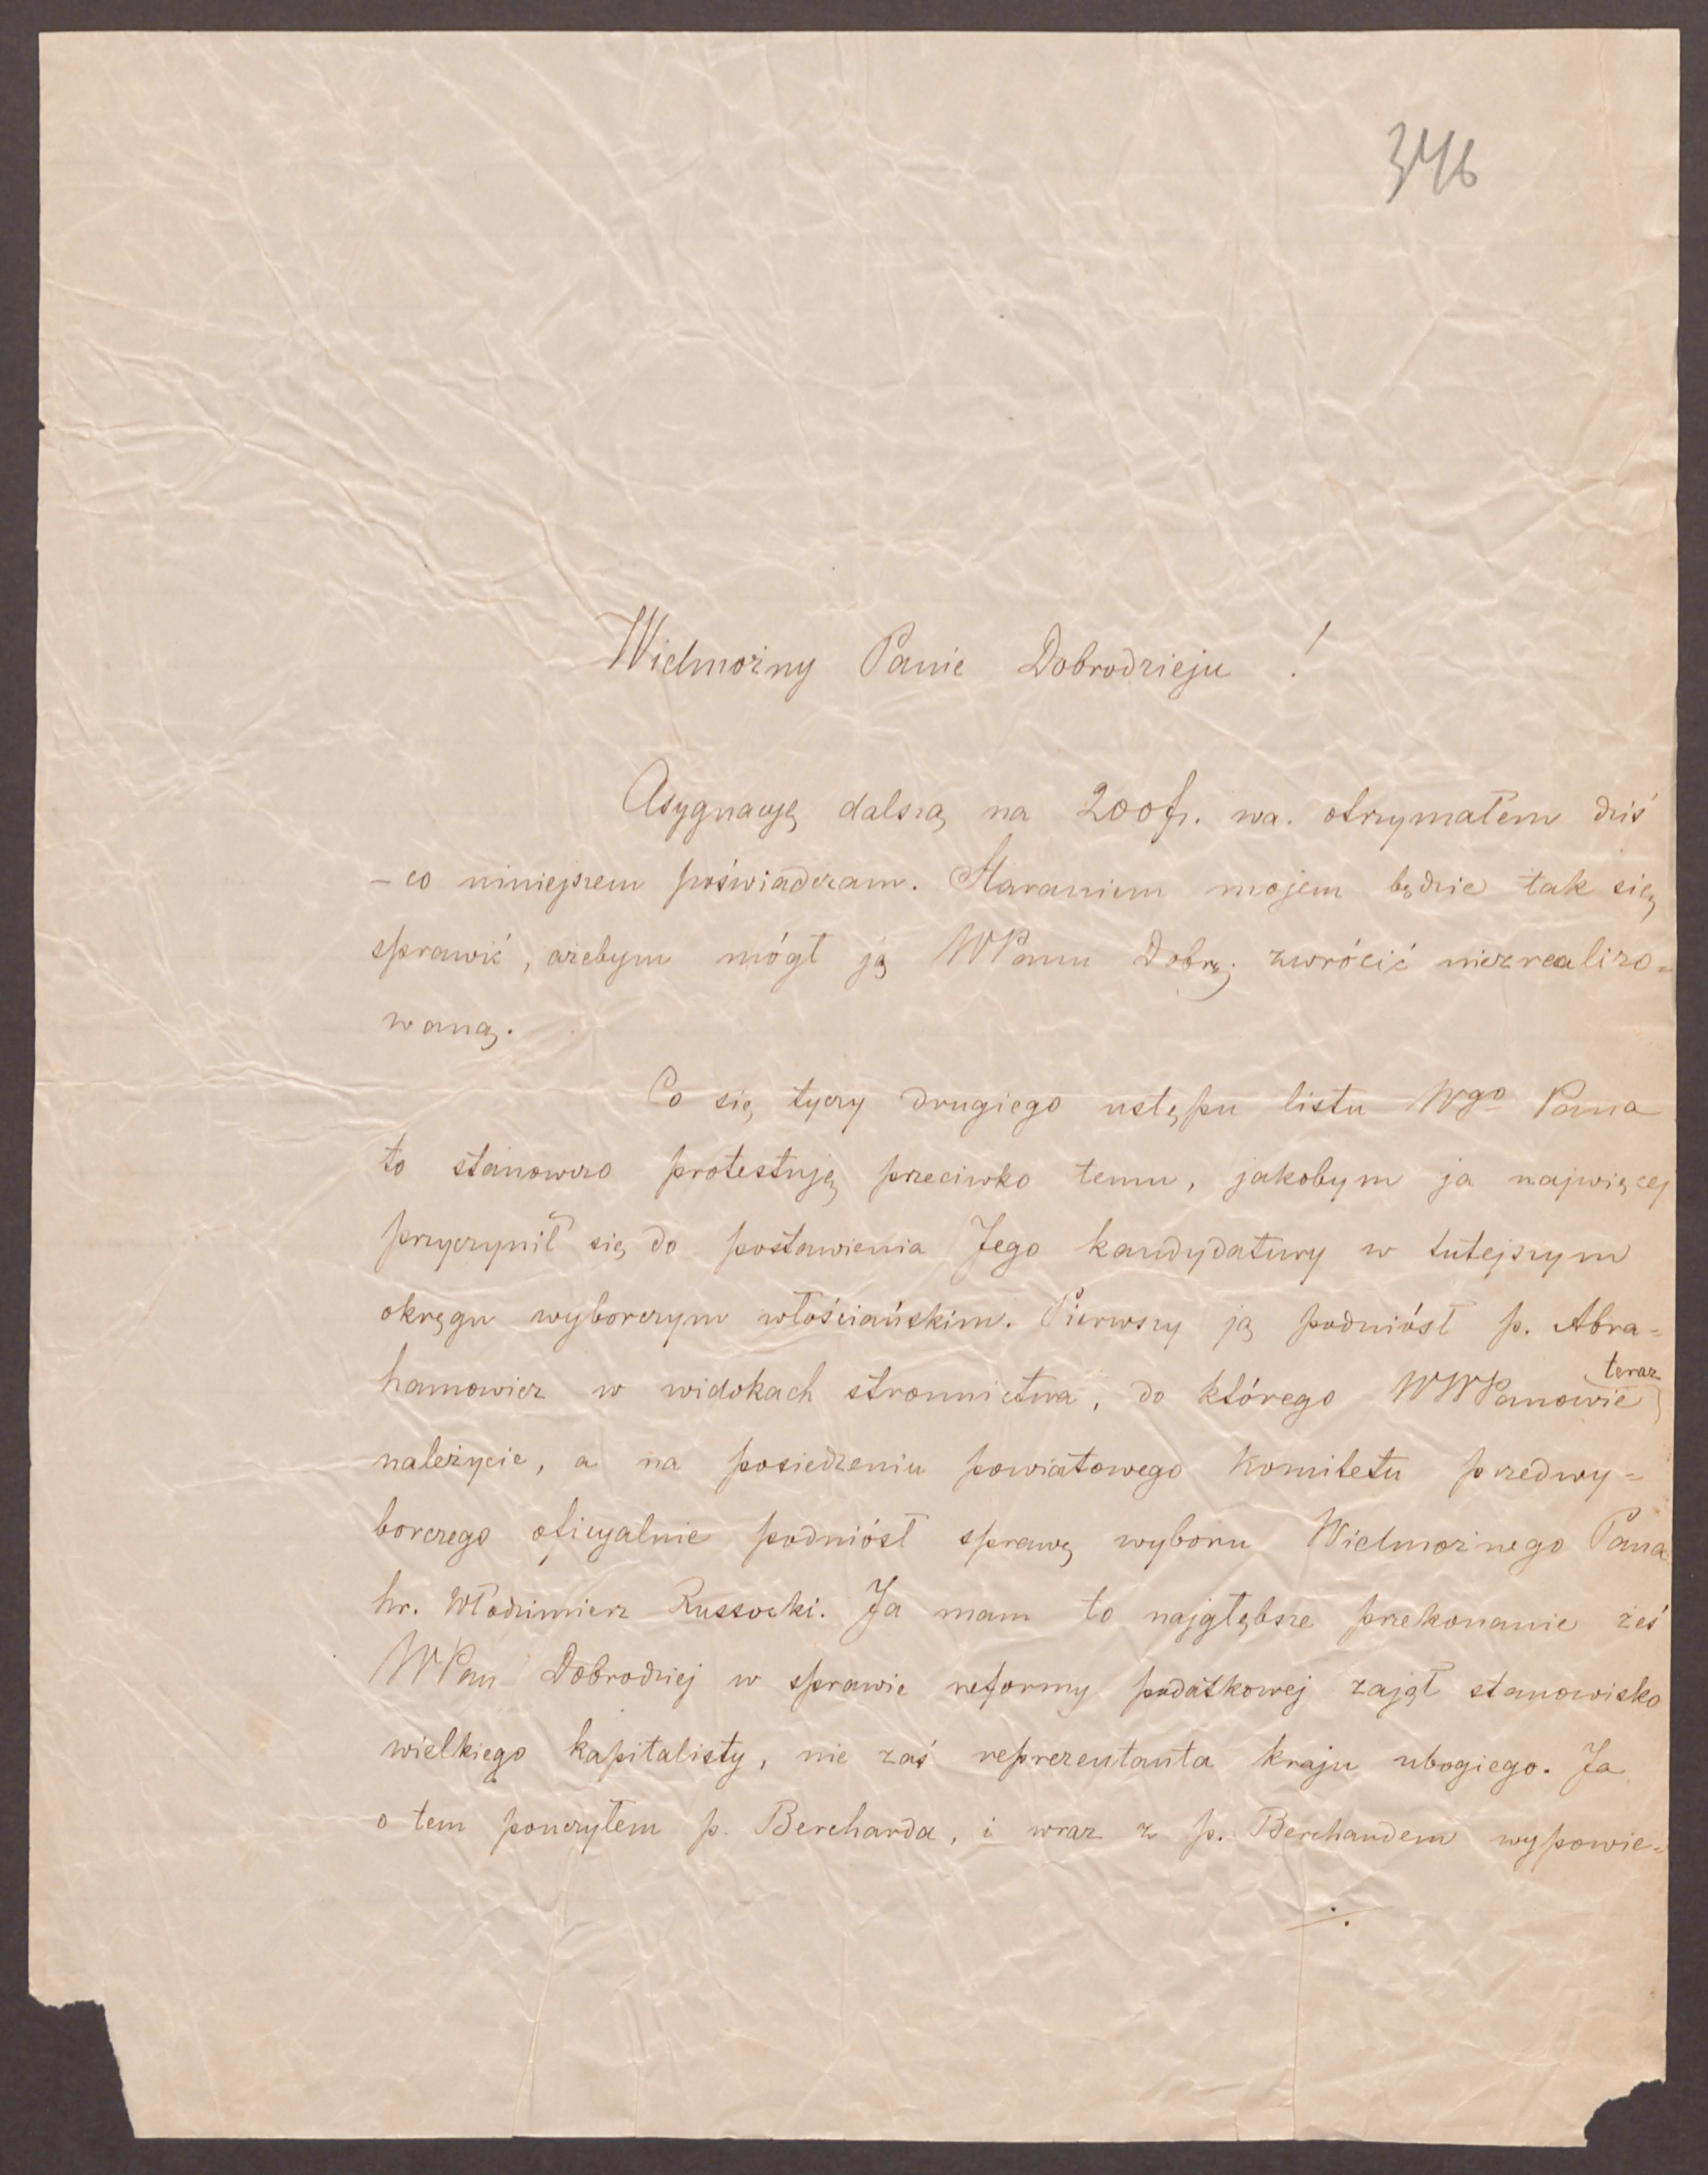 346
Wielmożny Panie Dobrodzieju !
Asygnację dalszą na 200 fr. wa. otrzymałem dziś
– co niniejszem poświadczam. Staraniem mojem będzie tak się
sprawić, ażebym mógł ją WPanu Dobrj. zwrócić niezrealizo=
waną.
Co się tyczy drugiego ustępu listu Wgo Pana
to stanowczo protestuję przeciwko temu, jakobym ja najwięcej
przyczynił się do postawienia Jego kandydatury w tutejszym
okręgu wyborczym włościańskim. Pierwszy ją podniósł p. Abra=
hamowicz w widokach stronnictwa, do którego WWPanowie teraz
należycie, a na posiedzeniu powiatowego Komitetu przedwy=
borczego oficyalnie podniósł sprawę wyboru Wielmożnego Pana
hr. Włodzimierz Russocki. Ja mam to najgłębsze przekonanie żeś
WPan Dobrodziej w sprawie reformy podatkowej zajął stanowisko
wielkiego kapitalisty, nie zaś reprezentanta kraju ubogiego. Ja
o tem pouczyłem p. Bercharda, i wraz z p. Berchardem wypowie=
./.